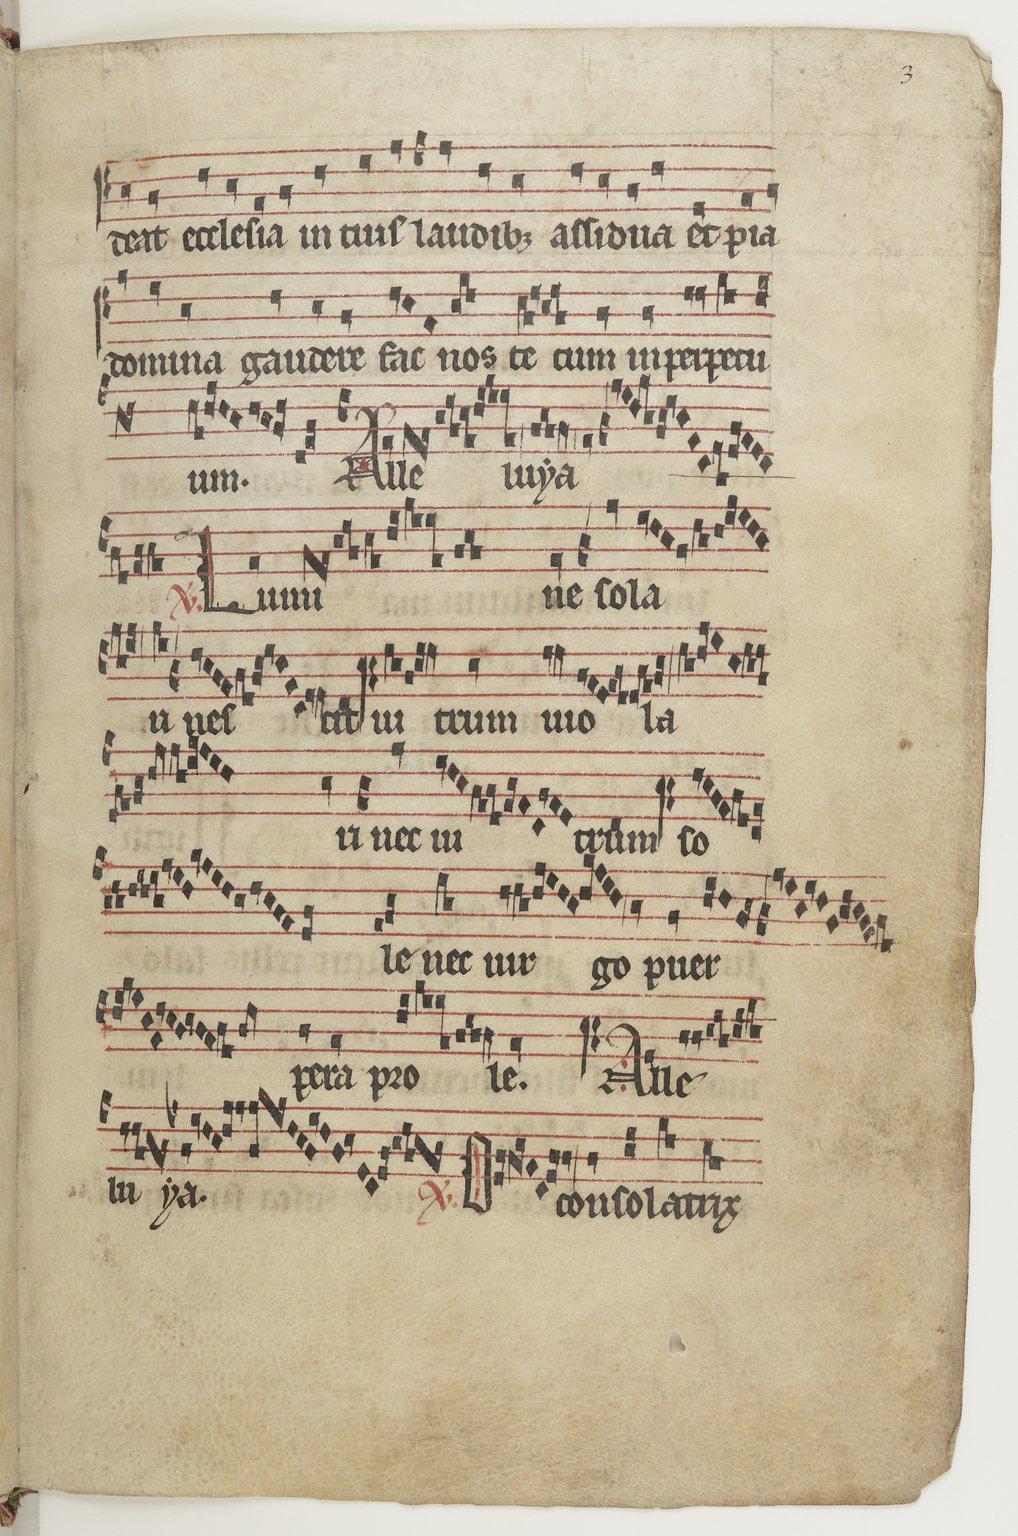 3
teat ecclesia in tuis laudibꝫ assidua et pia
domina gaudere fac nos te cum inperpetu
um. Alle luẏa
℣. Lumi ne sola
ri nes cit ui trum uio la
ri nec ui trum so
le nec uir go puer
pera pro le. Alle
lu ẏa. ℣. O consolatrix